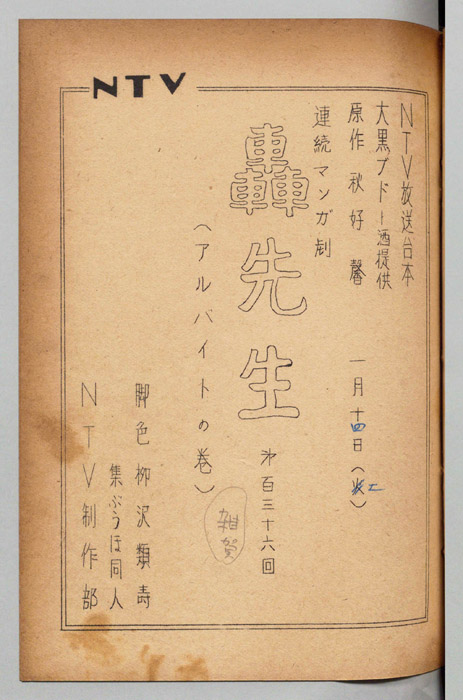 NTV
NTV放送台本
大黒ブドー酒提供
原作 秋好馨
一月十四日(土)
連続マンガ劇
轟先生
第百三十六回
(アルバイトの巻)
雑賀
脚色 柳沢類寿
集ぶうほ同人
NTV制作部